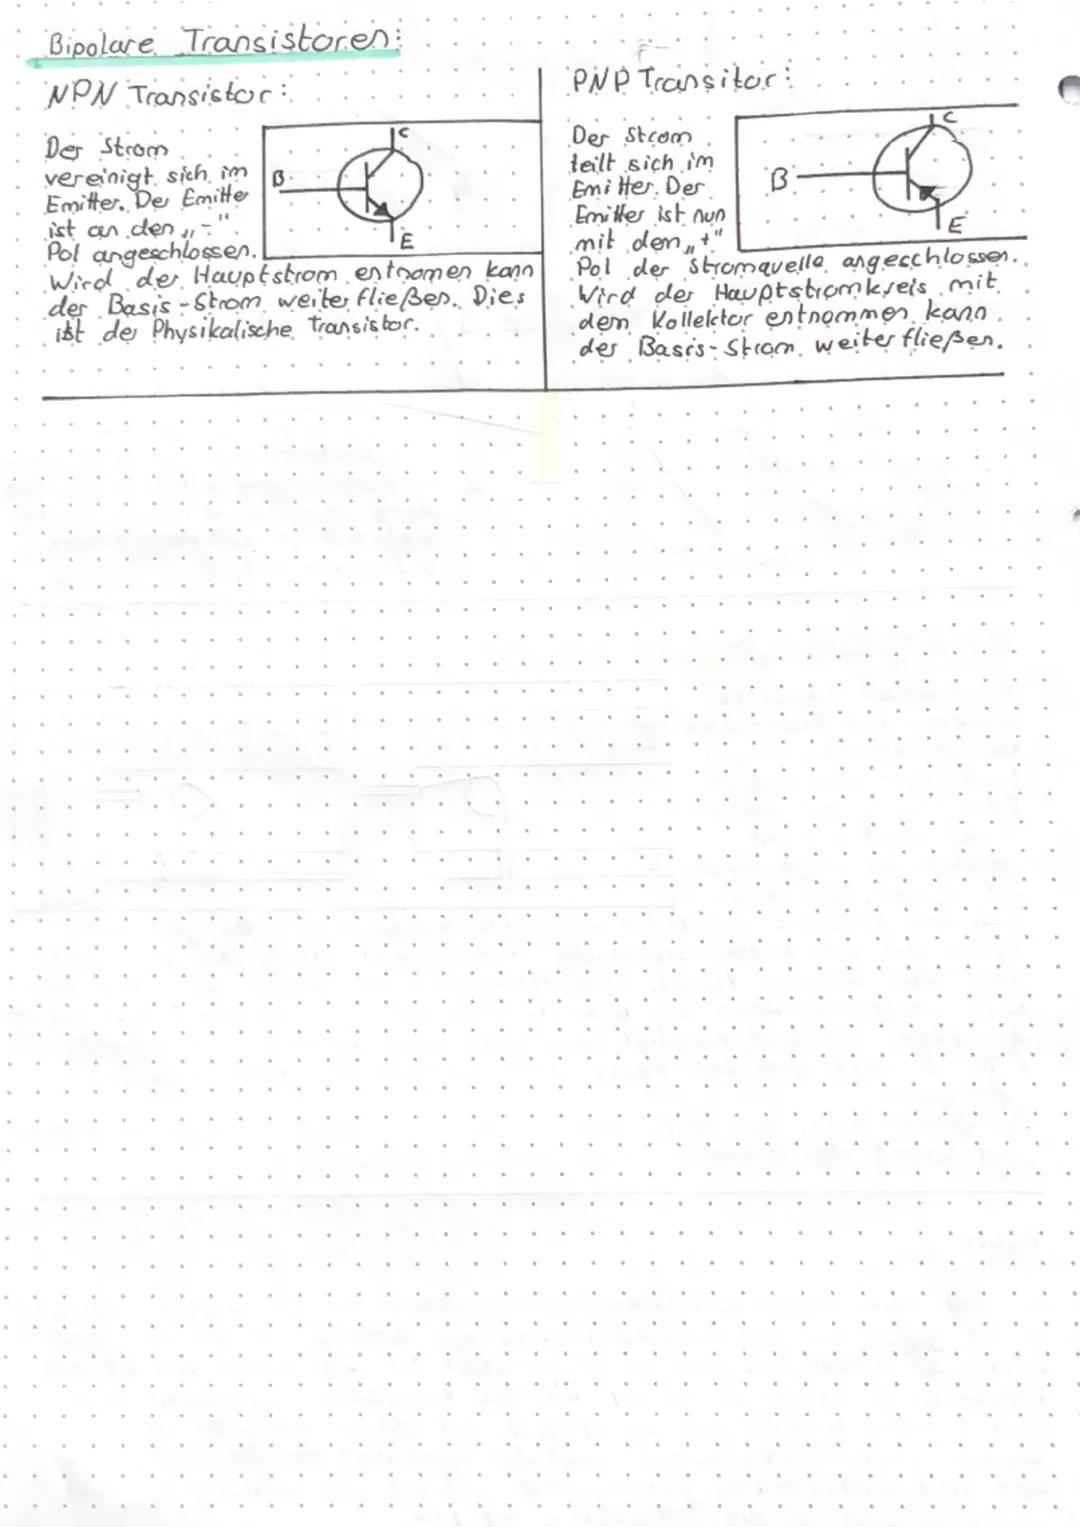 Bipolare Transistoren:
NPN Transistor:
Der Strom
vereinigt sich im
Emitter. Der Emitter
ist an den „-"
Pol angeschlossen.
Wird der Hauptstrom entnomen kann
der Basis-Strom weiter fließen. Dies
ist der Physikalische Transistor.
C
B
E
PNP Transitor:
Der Strom
teilt sich im
Emitter. Der
Emitter ist nun
mit dem „+"
Pol der Stromquelle angeschlossen.
Wird der Hauptstromkreis mit
dem Kollektor entnommen kann
der Basis-Strom weiter fließen.
C
B
E